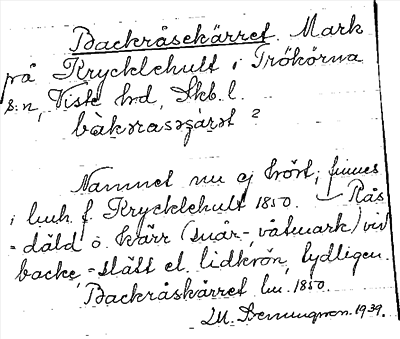 Backråsekärret. Mark
på Krycklehult i Trökörna
s:n, Viste hd, Skb. l.
bàkrasəʒárət ?
Namnet nu ej hört; finnes
i lmh. f. Krycklehult 1850. — Rås
= däld o. kärr (snår-, våtmark) vid
backe, = slätt el. lidkrön, tydligen.
Backråskärret lm. 1850.
1939.